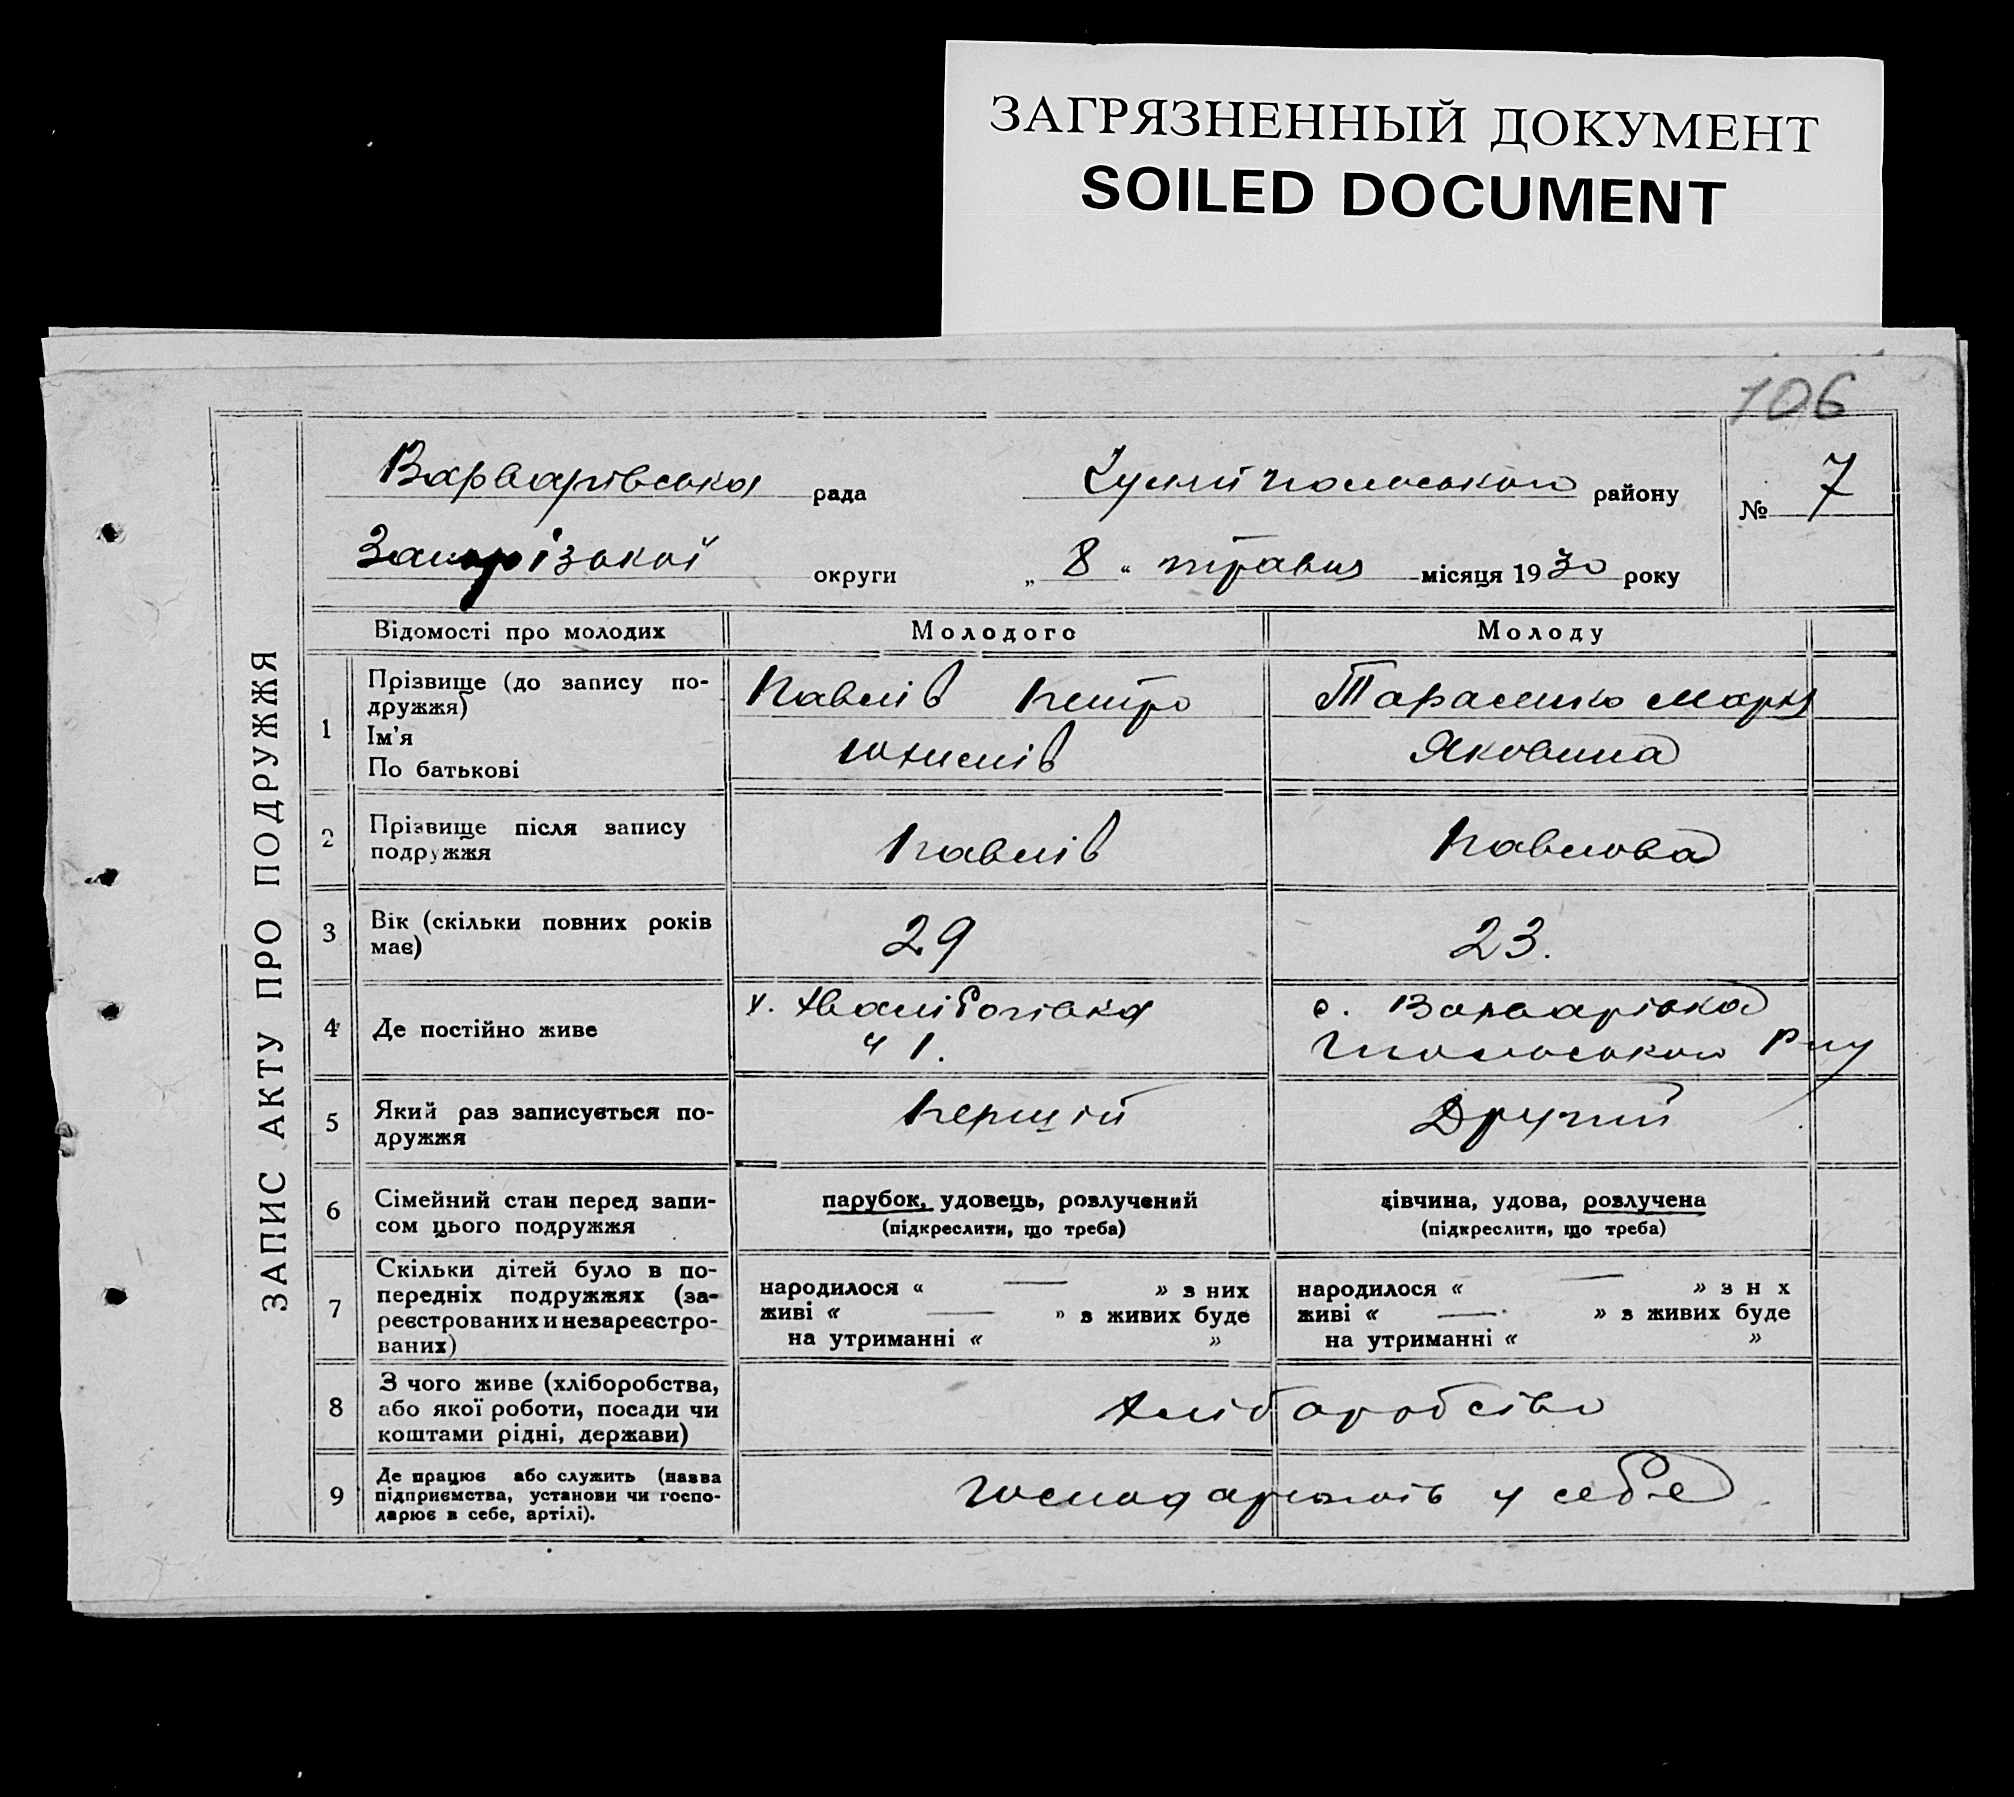 ЗАГРЯЗНЕННЫЙ ДОКУМЕНТ
SOILED DOCUMENT
106
ЗАПИС АКТУ ПРО ПОДРУЖЖЯ
Варварівська рада Гуляйпольського району № 7
Запорізької округи „ 8 “ травня місяця 1930 року
Відомості про молодих Молодого Молоду
1 Прізвище (до запису по-
дружжя)
Ім'я
По батькові
Павлів Петро
Юхимів
Тарасенко Марія
Яковина
2 Прізвище після запису
подружжя
Павлів
Павлова
3 Вік (скільки повних років
має)
29
23.
4 Де постійно живе
х.
ч 1.
с. Варварівка
Гпольського Р-ну
5 Який раз записується по-
дружжя
Перший
Другий
6 Сімейний стан перед запи-
сом цього подружжя
парубок, удовець, розлучений
(підкреслити, що треба)
дівчина, удова, розлучена
(підкреслити, що треба)
7 Скільки дітей було в по-
передніх подружжях (за-
реєстрованих и незареєстро-
ваних)
народилося « — » з них
живі « — » в живих буде
на утриманні « »
народилося « — » з н х
живі « — » з живих буде
на утриманні « »
8 З чого живе (хліборобства,
або якої роботи, посади чи
коштами рідні, держави)
Хліборобство
9 Де працює або служить (назва
підприємства, установи чи госпо-
дарює в себе, артілі).
Господарстві у себе